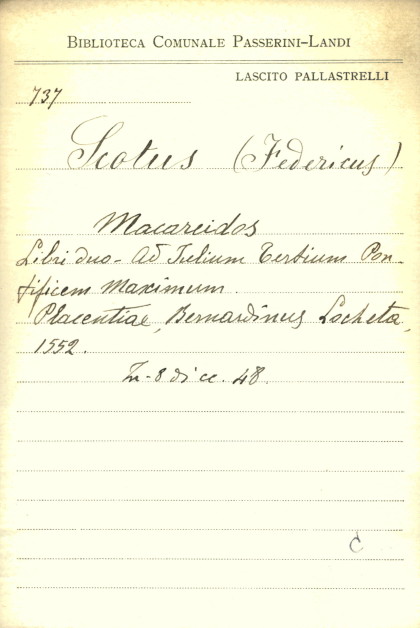 BIBLIOTECA COMUNALE PASSERINI-LANDI
LASCITO PALLASTRELLI
737
Scotus (Federicus)
Macareidos
Libri duo - Ad Julium Tertium Pon-
tificem Maximum.
Placentiae, Bernardinus Locheta,
1552.
In-8 di cc. 48.
C